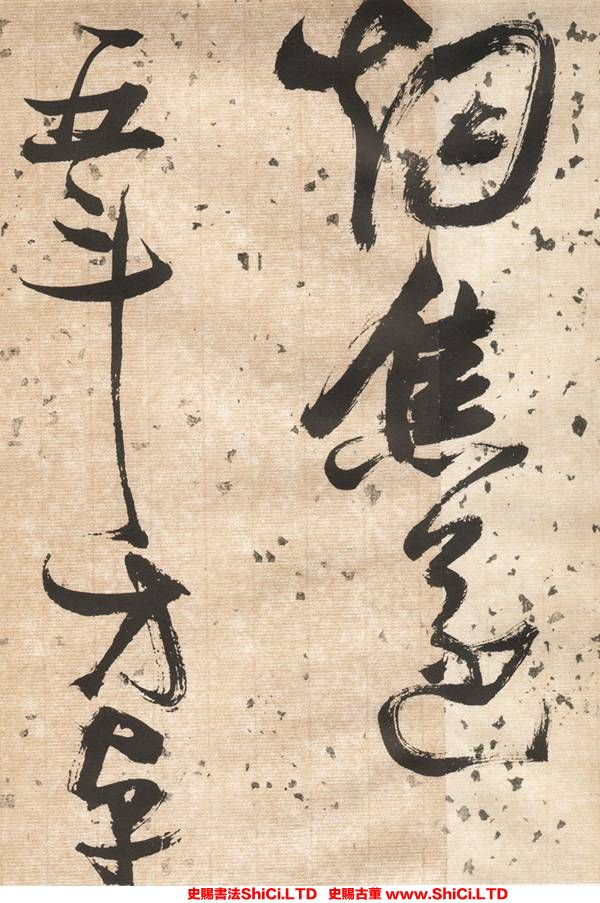 烟焦遂
五斗方卓
史賜書法ShiCi.LTD 史賜古董 www.ShiCi.LTD